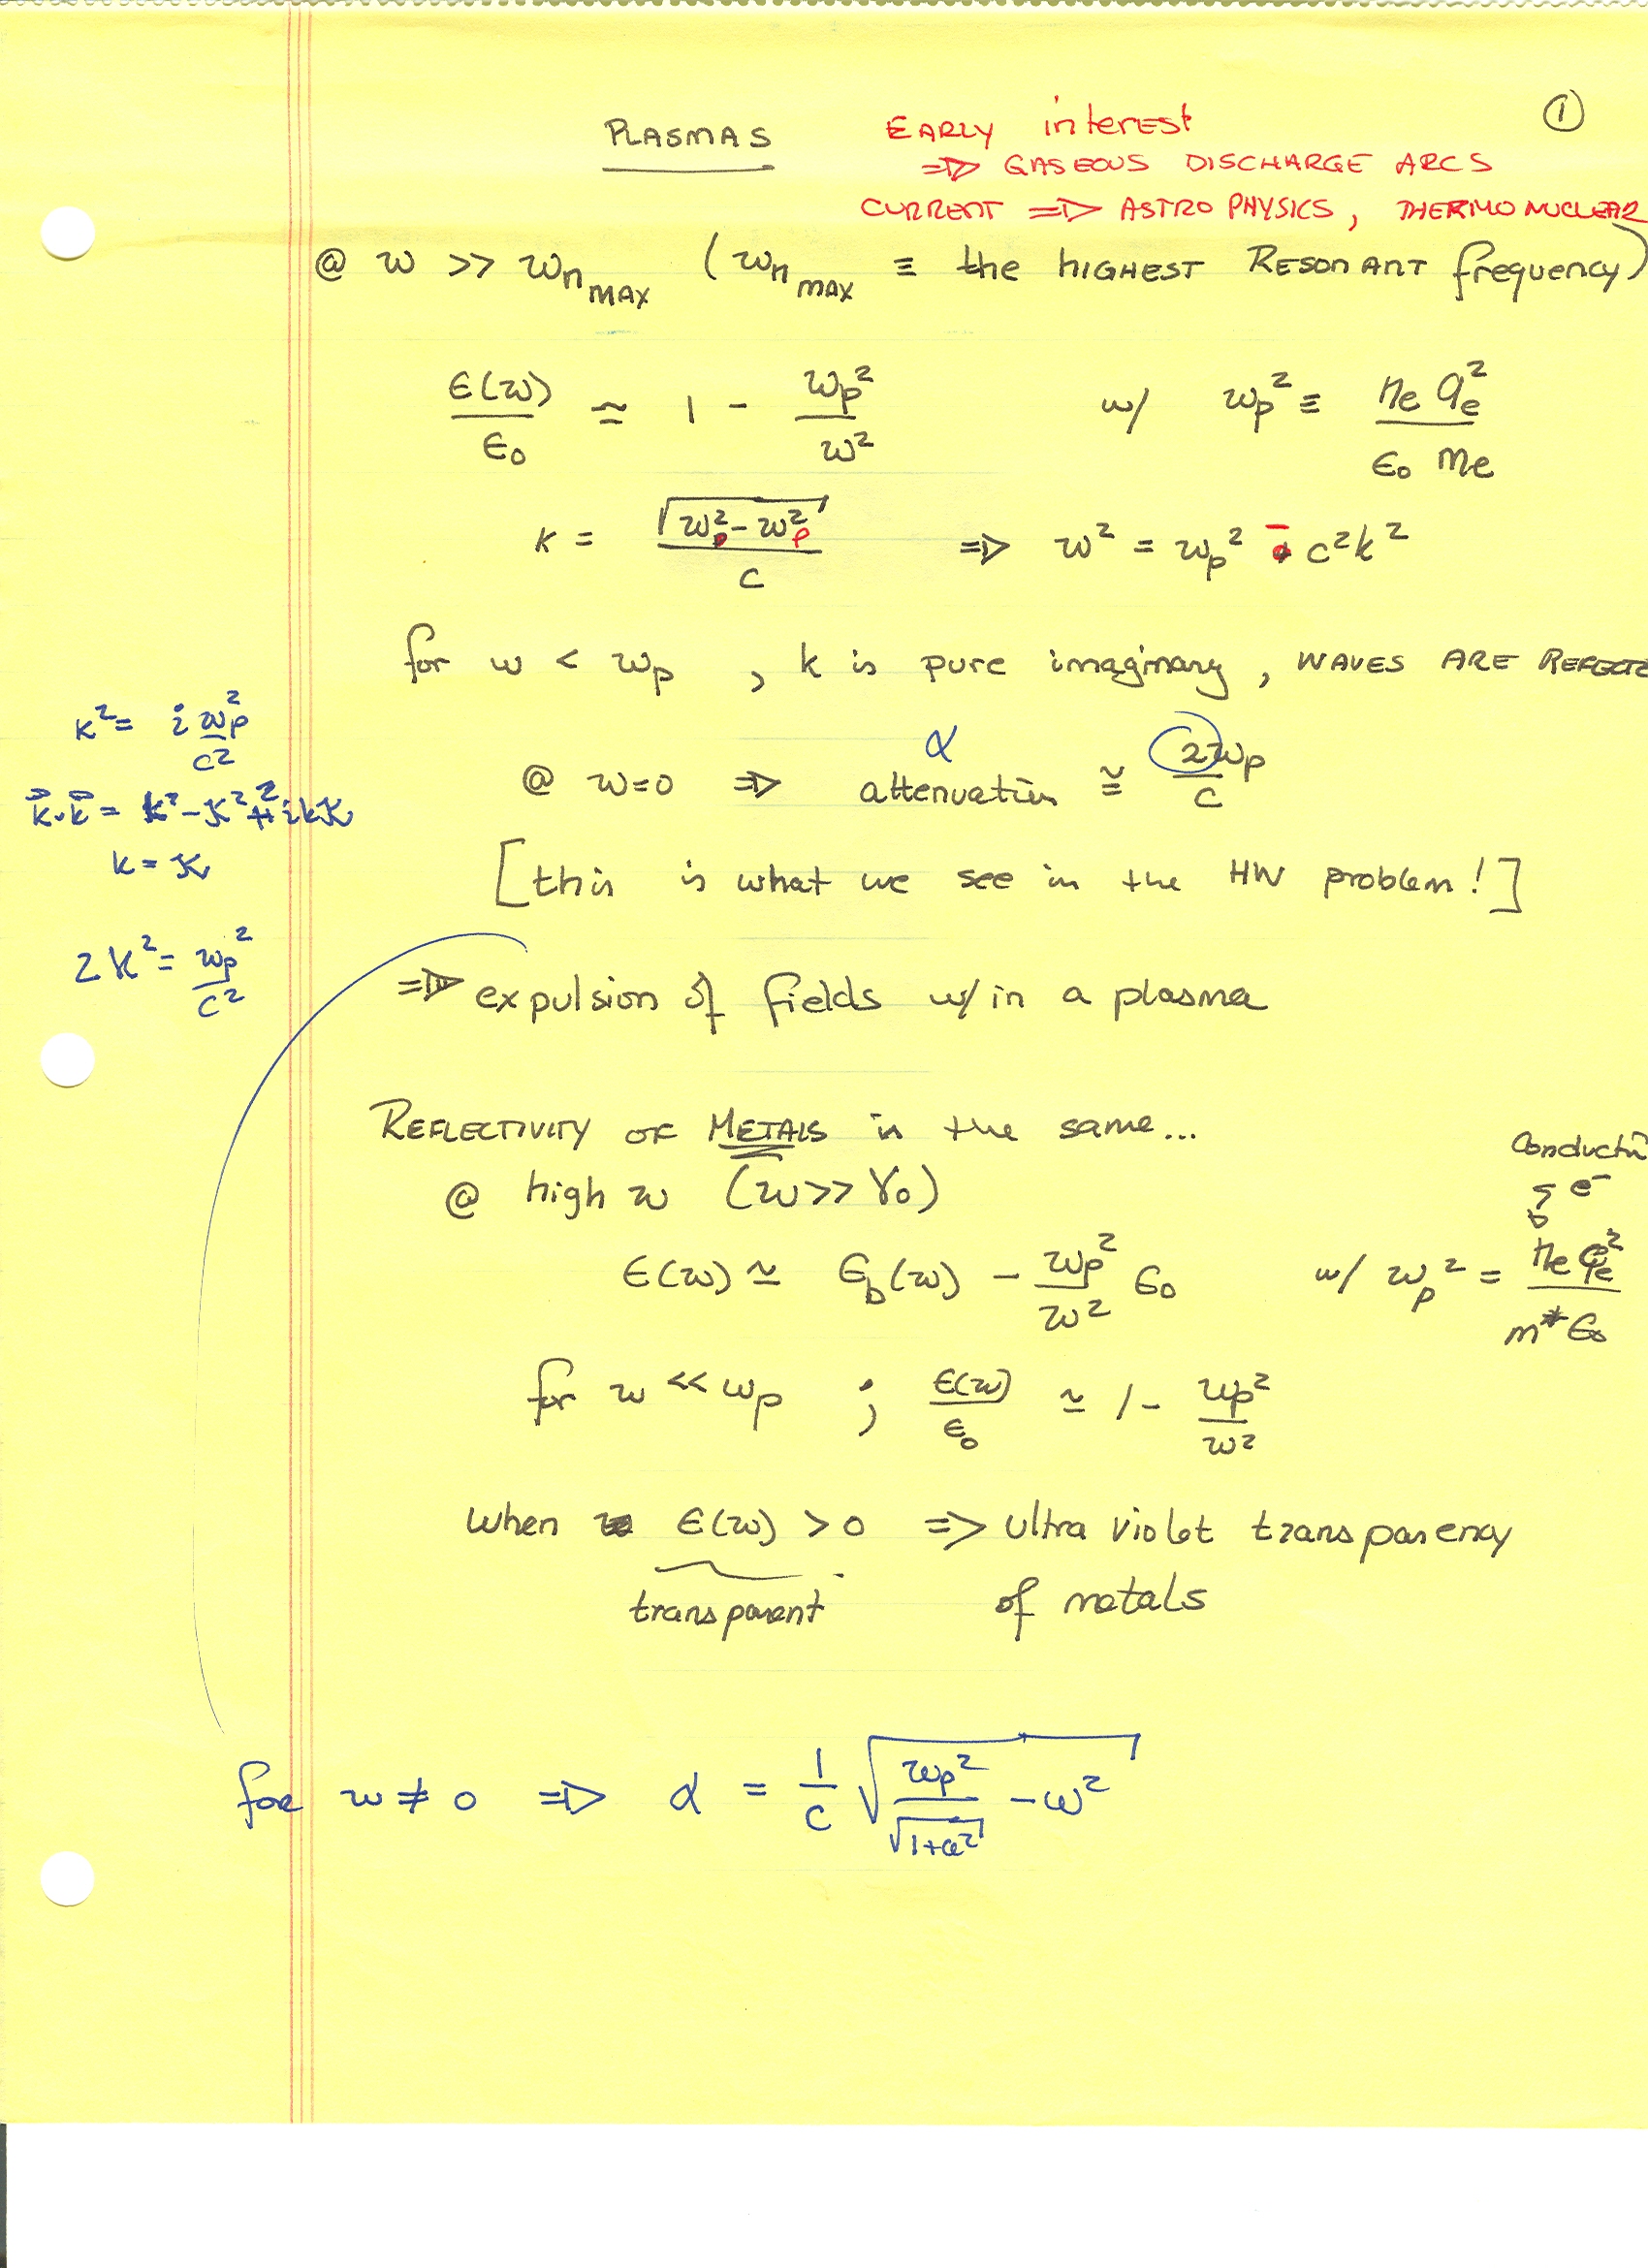 PLASMAS
EARLY interest
①
⇒ GASEOUS DISCHARGE ARCS
CURRENT ⇒ ASTROPHYSICS, THERMONUCLEAR
@ ω >> ωn MAX (ωn MAX ≡ the HIGHEST RESONANT frequency)
ϵ(ω)/ϵ0 ≃ 1 - ωp²/ω² w/ ωp² ≡ ne qe²/ϵ0 me
k = √(ω² - ωp²)/c ⇒ ω² = ωp² - c²k²
for ω < ωp , k is pure imaginary, WAVES ARE REFLECTE
k² = i ωp²/c²
α
@ ω=0 ⇒ attenuation ≅ 2ωp/c
k⃗·k⃗ = k² - K² + 2ikK
k = K
[this is what we see in the HW problem!]
2k² = ωp²/c²
⇒ expulsion of fields w/in a plasma
REFLECTIVITY OF METALS is the same...
Conducti
@ high ω (ω >> γ0)
e⁻
ϵ(ω) ≃ ϵb(ω) - ωp²/ω² ϵ0 w/ ωp² = ne qe²/m* ϵ0
for ω << ωp ; ϵ(ω)/ϵ0 ≃ 1 - ωp²/ω²
when ϵ(ω) > 0 ⇒ ultra violet transparency
transparent of metals
for ω ≠ 0 ⇒ α = 1/c √(ωp²/√(1+α²) - ω²)